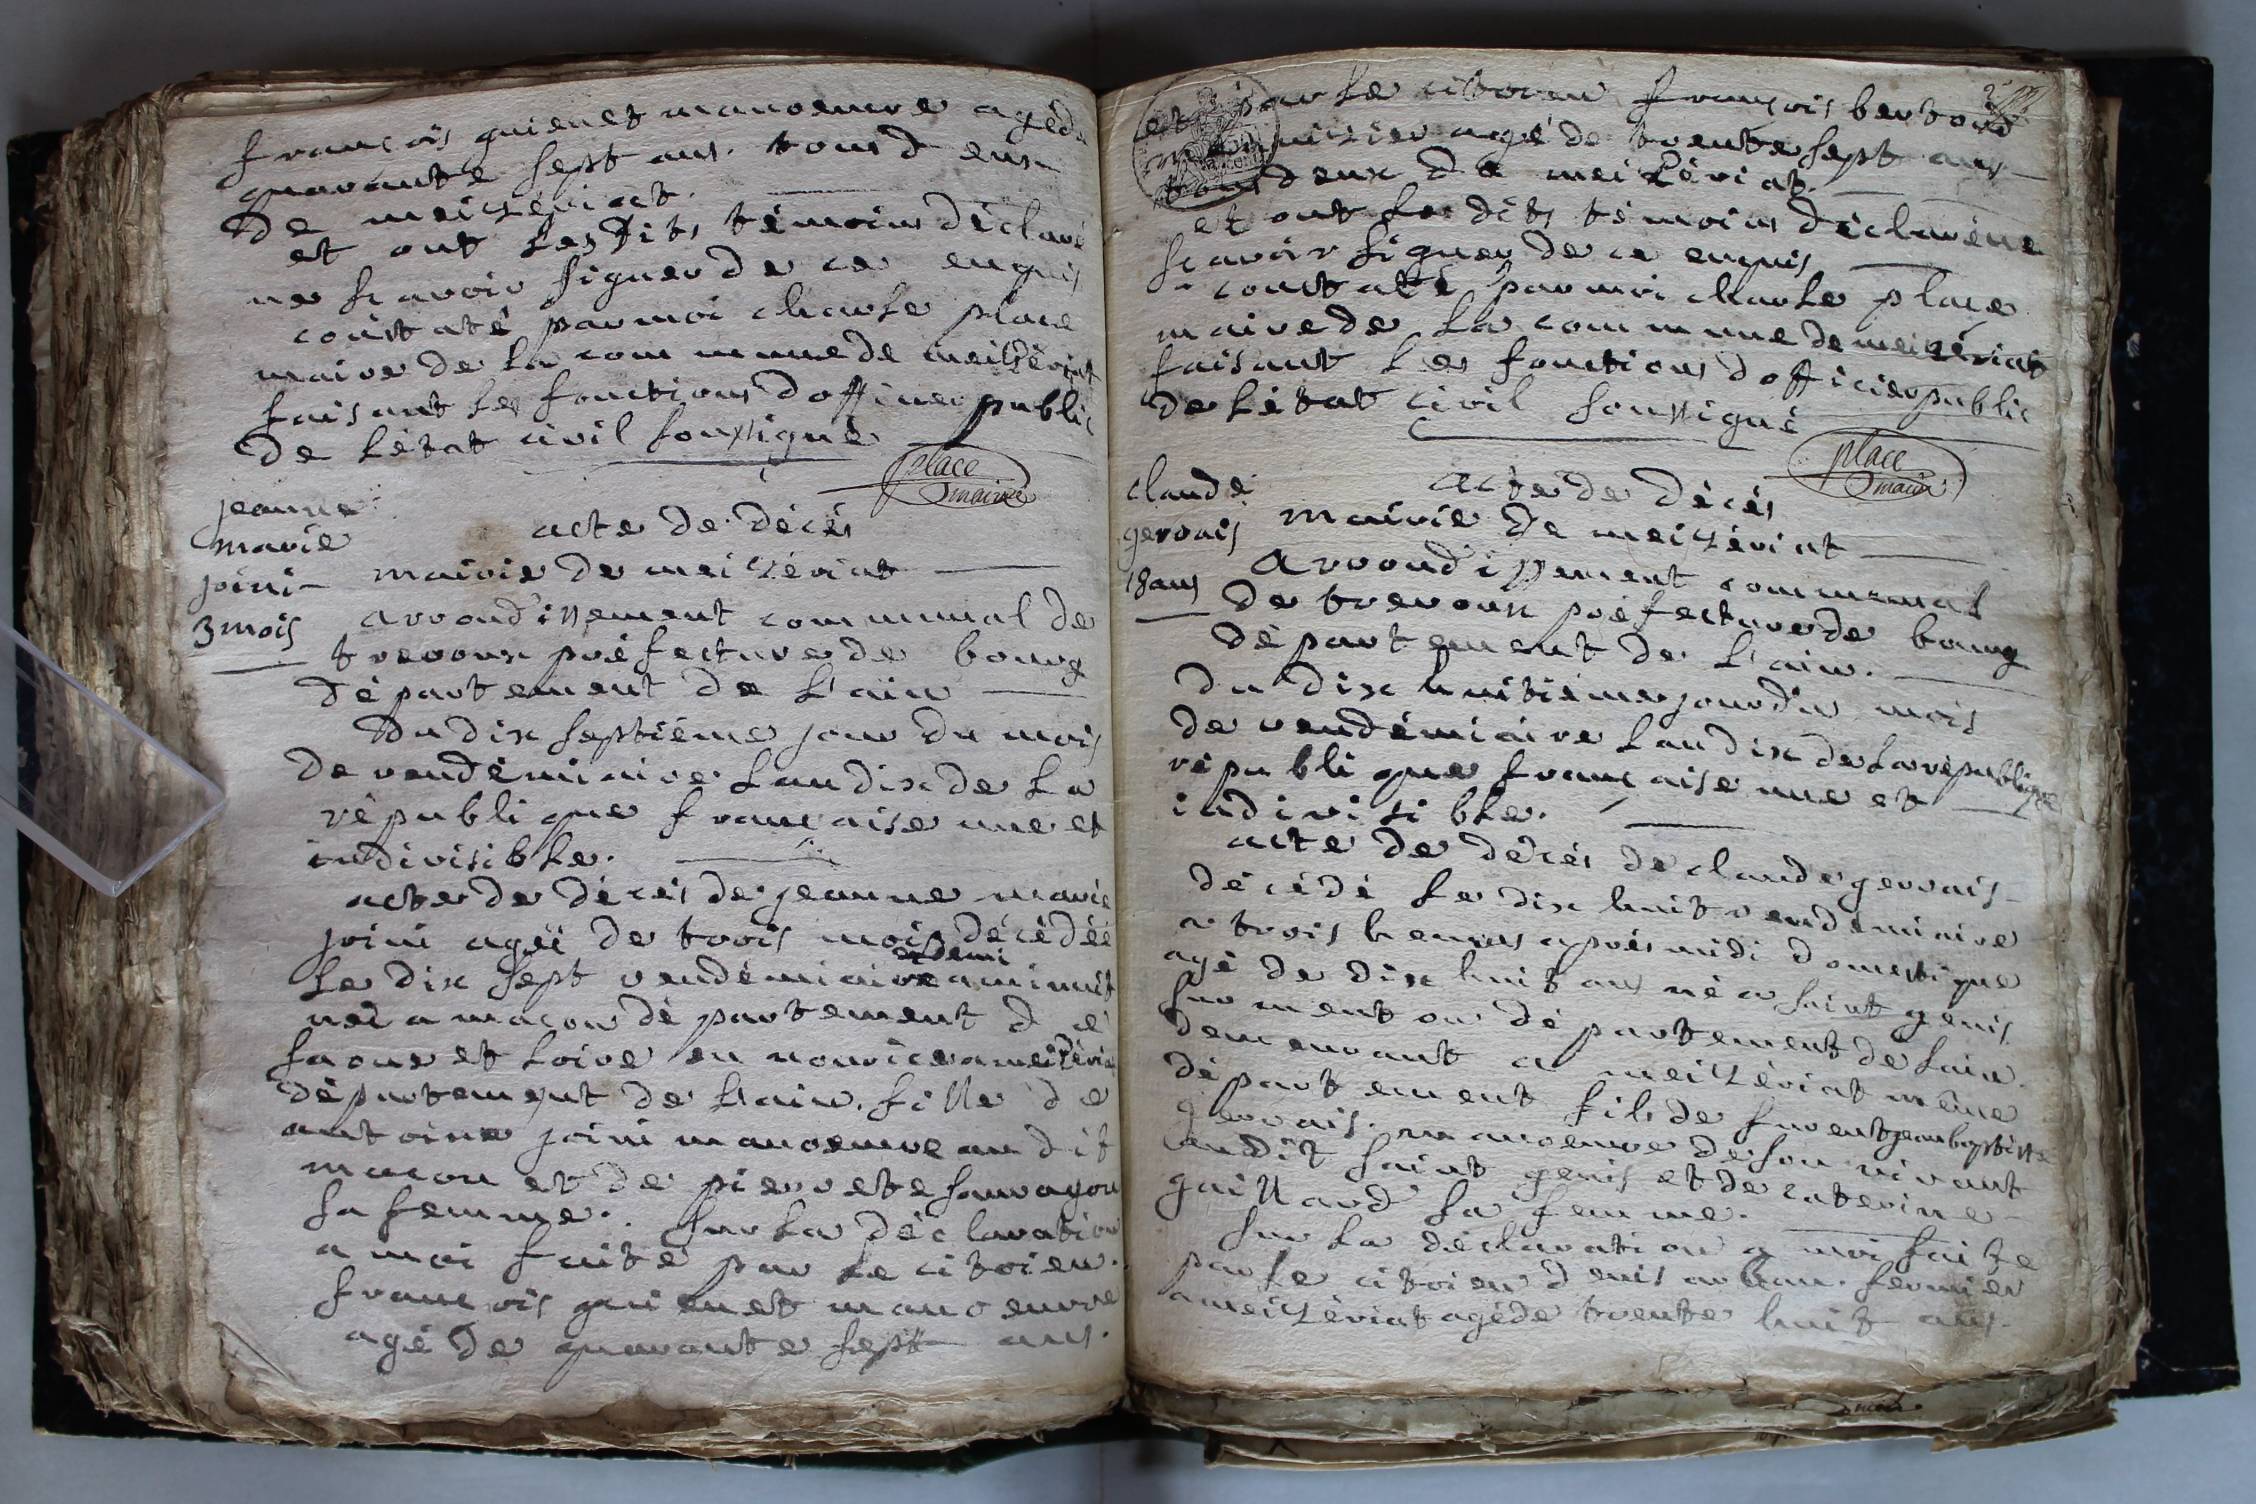 françois guienet manoeuvre agé de
quarante sept ans. tous d ens
de meizériat.
et ont les dits témoins déclaré
ne scavoir signer de ce enquis
constaté par moi charle place
maire de la commune de meizériat
faisant les fonctions d officier public
de létat civil soussigné
place
maire
jeanne
marie
joini
3 mois
acte de décés
mairie de meizériat
arrondissement communal de
trevoux préfecture de bourg
département de l'ain
Du dix septiéme jour du mois
de vendémiaire lan dix de la
république française une et
indivisible.
acte de décés de jeanne marie
joini ageé de trois mois décédée
et demi
le dix sept vendémiaire a minuit
neé a macon département de
saone et loire en nourice a meizériat
département de l'ain. fille de
antoine joini manoeuvre au dit
macon et de pierrete sauvageon
sa femme. sur la déclaration
a moi faite par le citoien.
françois guienet manoeuvre
agé de quarante sept ans.
et par le citoyen françois bertoud
agé de trente sept ans
tous deux de meizériat.
et ont les dits témoins déclaré ne
scavoir signer de ce enquis
constaté par moi charle place
maire de la commune de meizériat
faisant les fonctions d officier public
de létat civil soussigné
place
maire
claude
gervais
18 ans
acte de décés
mairie de meizériat
arrondissement communal
de trevoux préfecture de bourg
département de l'ain.
du dix huitiéme jour du mois
de vendémiaire lan dix de la république
république française une et
indivisible.
acte de décés de claude gervais
décédé le dix huit vendémiaire
a trois heures aprés midi domestique
agé de dix huit ans né a saint genis
sur menton département de lain
demeurant a meizériat même
département fils de furent jean baptiste
gervais. manoeuvre de son vivant
audit saint genis et de caterine
gaillard sa femme.
sur la déclaration a moi faite
par le citoien denis arban. fermier
a meizériat agé de trente huit ans.